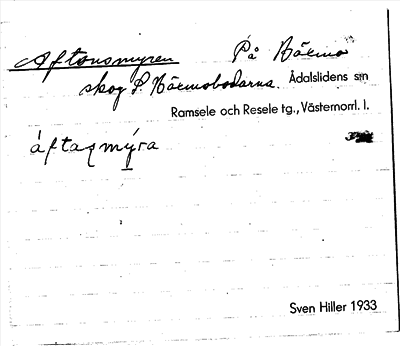 Aftonsmyren På Närmo
skog S. Närmobodarna. Ådalslidens sn
Ramsele och Resele tg., Västernorrl. l.
áftaƞmýra
Sven Hiller 1933